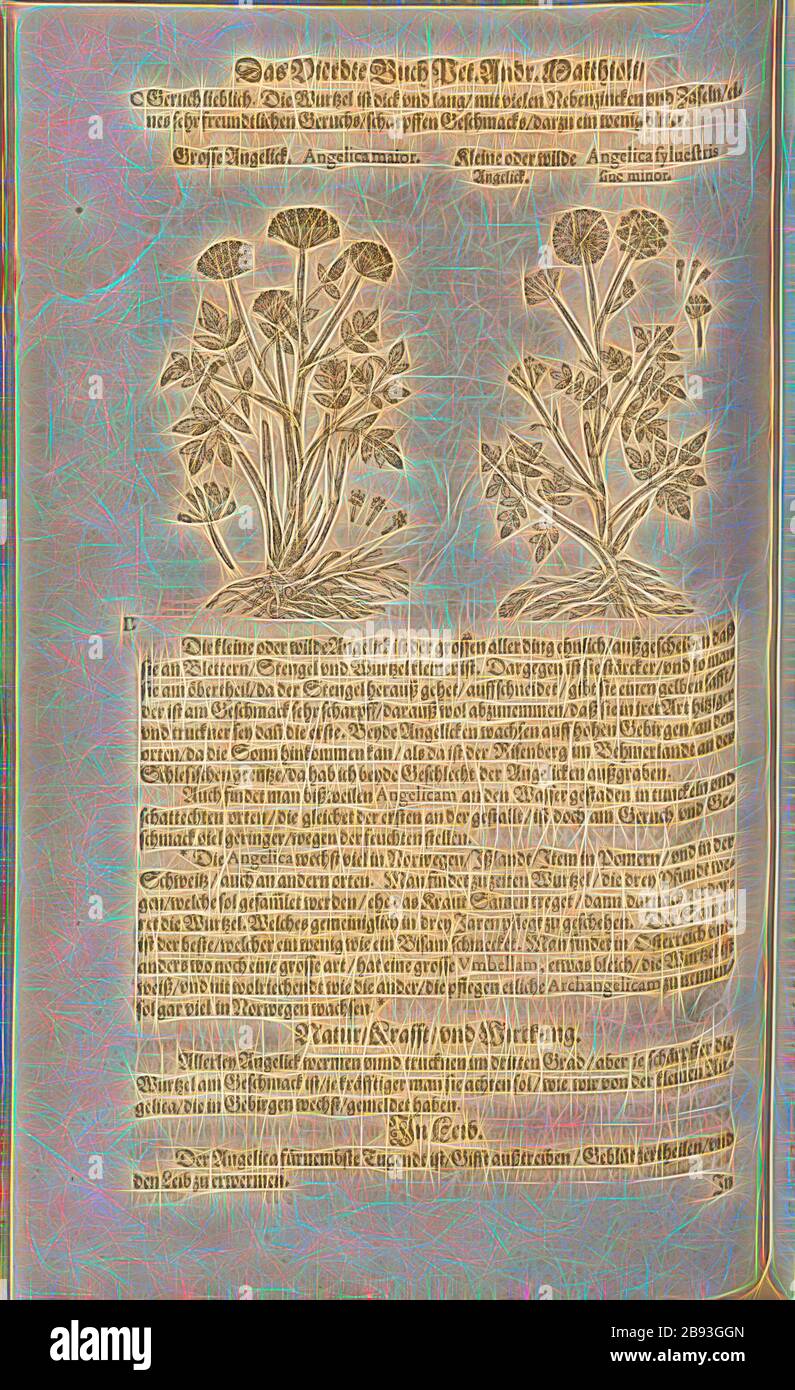 Das Vierdte Buch Pet. Andr. Matthioli/
Geruch lieblich. Die Wurtzel ist dick vnd lang/ mit vielen Nebenzincken vnd Zaseln/ ei-
nes sehr freundtlichen Geruchs/ scharpffen Geschmacks/ darzu ein wenig bitter.
Grosse Angelick. Angelica maior. Kleine oder wilde Angelica syluestris
Angelick. siue minor.
Die kleine oder wilde Angelick ist der grossen aller ding ehnlich/ außgescheiden daß
sie an Blettern/ Stengel vnd Wurtzel kleiner ist. Dargegen ist sie stärcker/ vnd so man
sie am öbertheil/ da der Stengel herauß gehet/ auffschneidet/ gibt sie einen gelben safft/
der ist am Geschmack sehr scharpff/ darauß wol abzunemmen/ daß sie in jrer Art hitziger
vnd truckner sey dañ die erste. Beyde Angelicken wachsen auff hohen Gebirgen/ an den
orten/ da die Sonn hinkommen kan/ als da ist der Risenberg im Behmerlandt an der
Schlesischen grentze/ da hab ich beyde Geschlecht der Angelicken außgraben.
Auch findet man bißweilen Angelicam an den Wasser gestaden in tunckeln vnd
schattechten orten/ die gleichet der ersten an der gestallt/ ist doch am Geruch vnd Ge-
schmack viel geringer/ wegen der feuchten stellen.
* Die Angelica wechst viel in Norwegen/ Ißlandt/ Item in Pomern/ vnd in der
Schweitz/ auch an andern orten. Man findet zu zeiten Wurtzel/ die drey Pfundt we-
gen/ welche sol gesam̃let werden/ ehe das Kraut Samen treget/ dann darnach verdor-
ret die Wurtzel. Welches gemeiniglich in dreyen Jaren pflegt zu geschehen. Der Samen
ist der beste/ welcher ein wenig wie ein Bisam schmecket. Man findet in Osterreich vnd
anders wo noch eine grosse art/ hat eine grosse Vmbellam, etwas bleich/ die Wurtzel ist
weiß/ vnd nit wolriechendt wie die ander/ die pflegen etliche Archangelicam zu nennen/
sol gar viel in Norwegen wachsen. *
Natur/ Krafft/ vnd Wirckung.
Allerley Angelick wermen vnnd trucknen im dritten Grad/ aber je schärpffer die
Wurtzel am Geschmack ist/ je kräfftiger man sie achten sol/ wie wir von der kleinen An-
gelica/ die in Gebirgen wechst/ gemeldet haben.
In Leib.
Der Angelica fürnembste Tugendt ist/ Gifft außtreiben/ Geblüt zertheilen/ vnd
den Leib zu erwermen.
In
alamy
Image ID: 2B93GGN
www.alamy.com